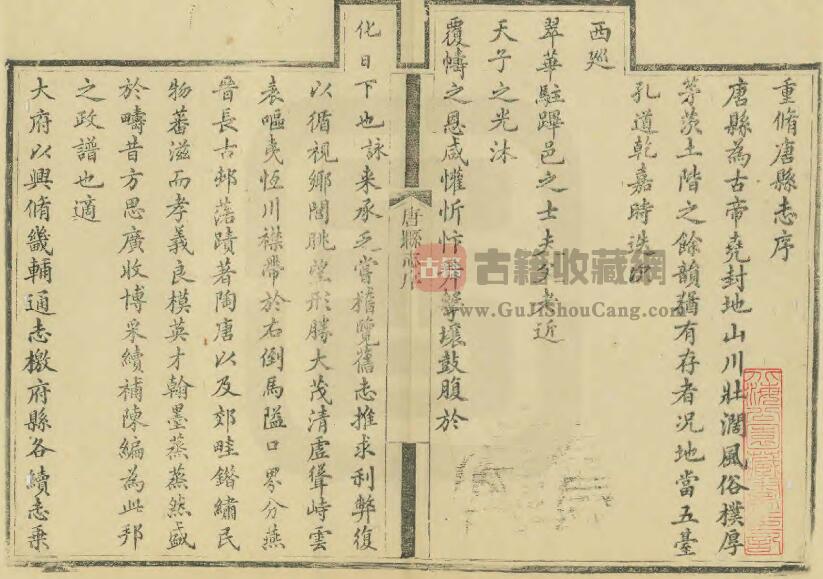 重脩唐縣志序
唐縣為古帝堯封地山川壯濶風俗樸厚
茅茨土階之餘韻猶有存者况地當五臺
孔道乾嘉時迭次
西廵
翠華駐蹕邑之士夫父老近
天子之光沐
覆幬之恩咸懽忻忭舞擊壤鼓腹於
唐縣志序
化日下也詠來承乏嘗稽覽舊志推求利弊復
以循視鄉閭眺望形勝大茂清虛聳峙雲
表嘔夷恆川襟帶於右倒馬隘口界分燕
晉長古邨落蹟著陶唐以及郊畦錯繡民
物蕃滋而孝義良模英才翰墨蒸蒸然盛
於疇昔方思廣收博采續補陳編為此邦
之政譜也適
大府以興脩畿輔通志檄府縣各續志乘
古籍
古籍收藏网
www.GuJiShouCang.com